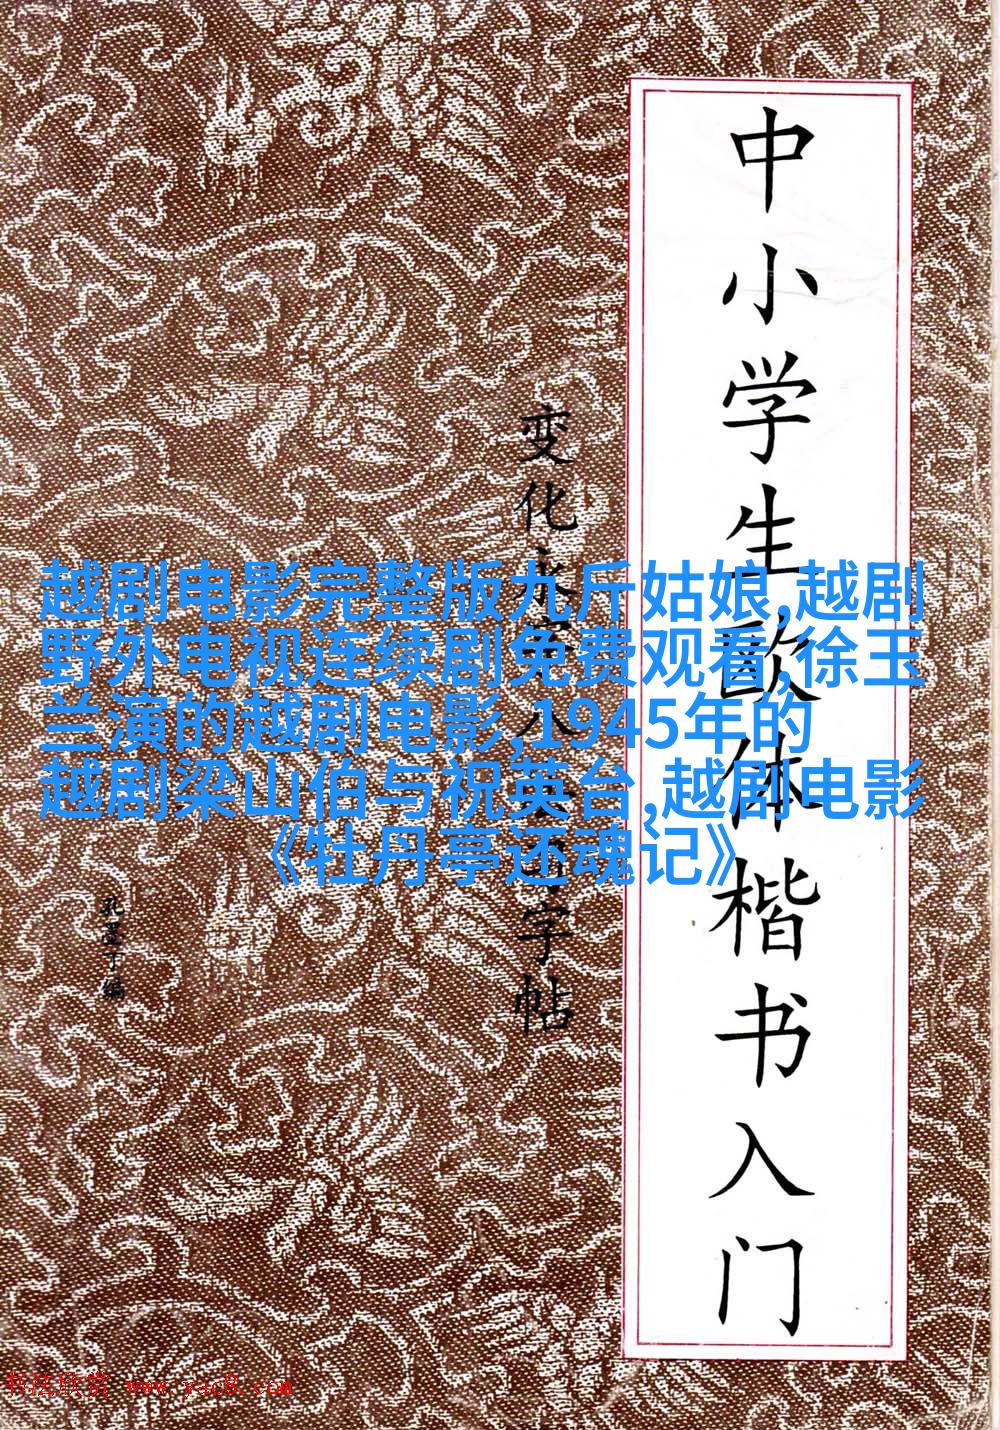 中小学生欧体楷书入门
变化永字八法字帖
孔墨丁编
越剧电影完整版九斤姑娘,越剧
野外电视连续剧免费观看,徐玉
兰演的越剧电影,1945年的
越剧梁山伯与祝英台,越剧电影
《牡丹亭还魂记》
书法欣赏 www.yac8.com